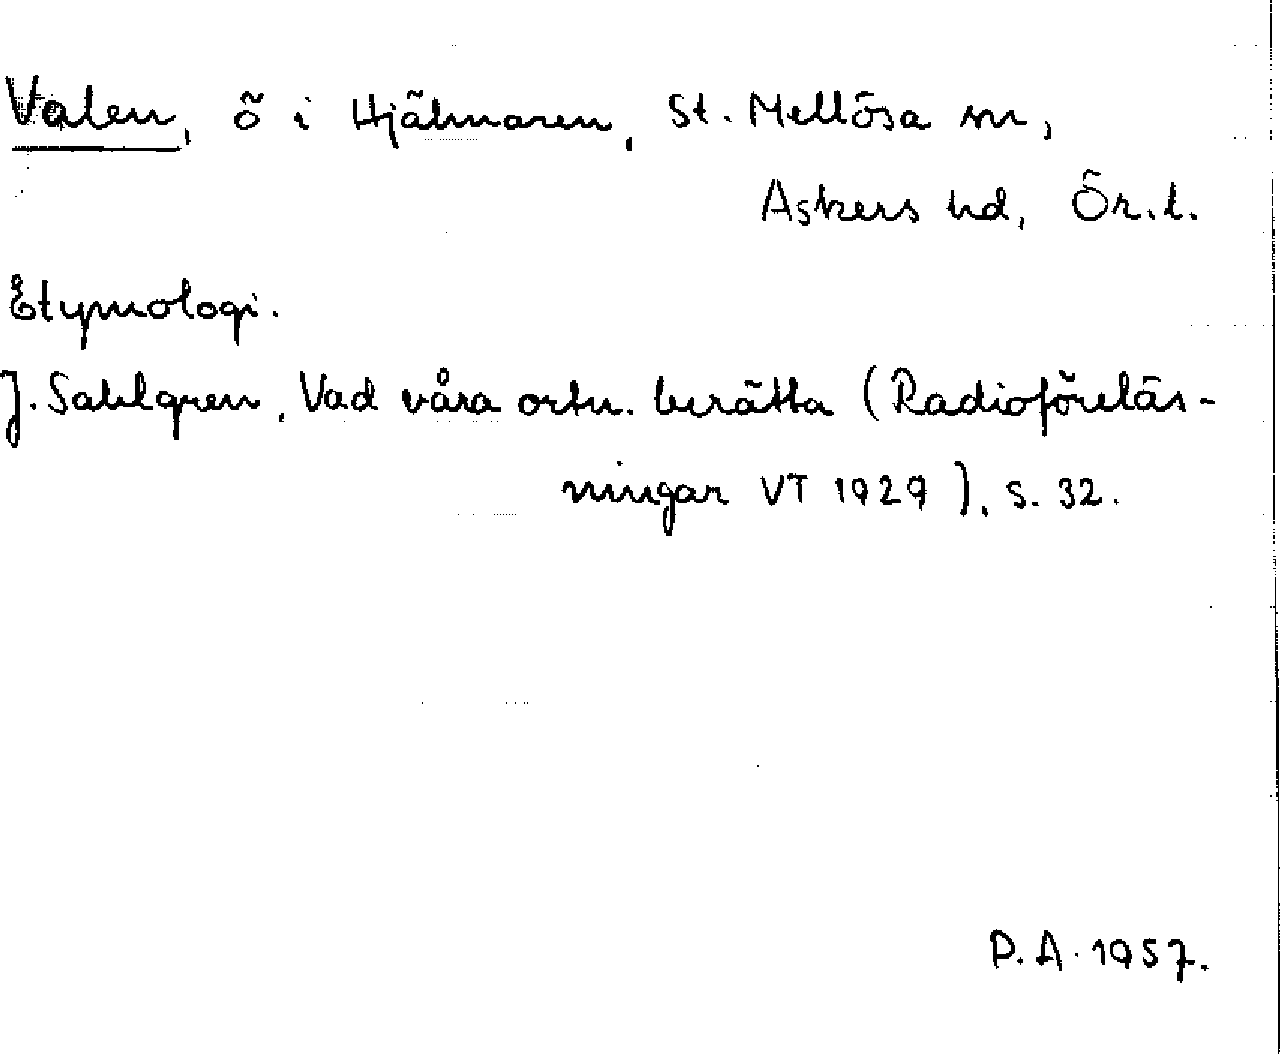 Valen, ö i Hjälmaren, St. Mellösa sn,
Askers hd, Ör.l.
Etymologi.
J. Sahlgren, Vad våra ortn. berätta (Radioföreläs-
ningar VT 1929), s. 32.
P.A. 1957.